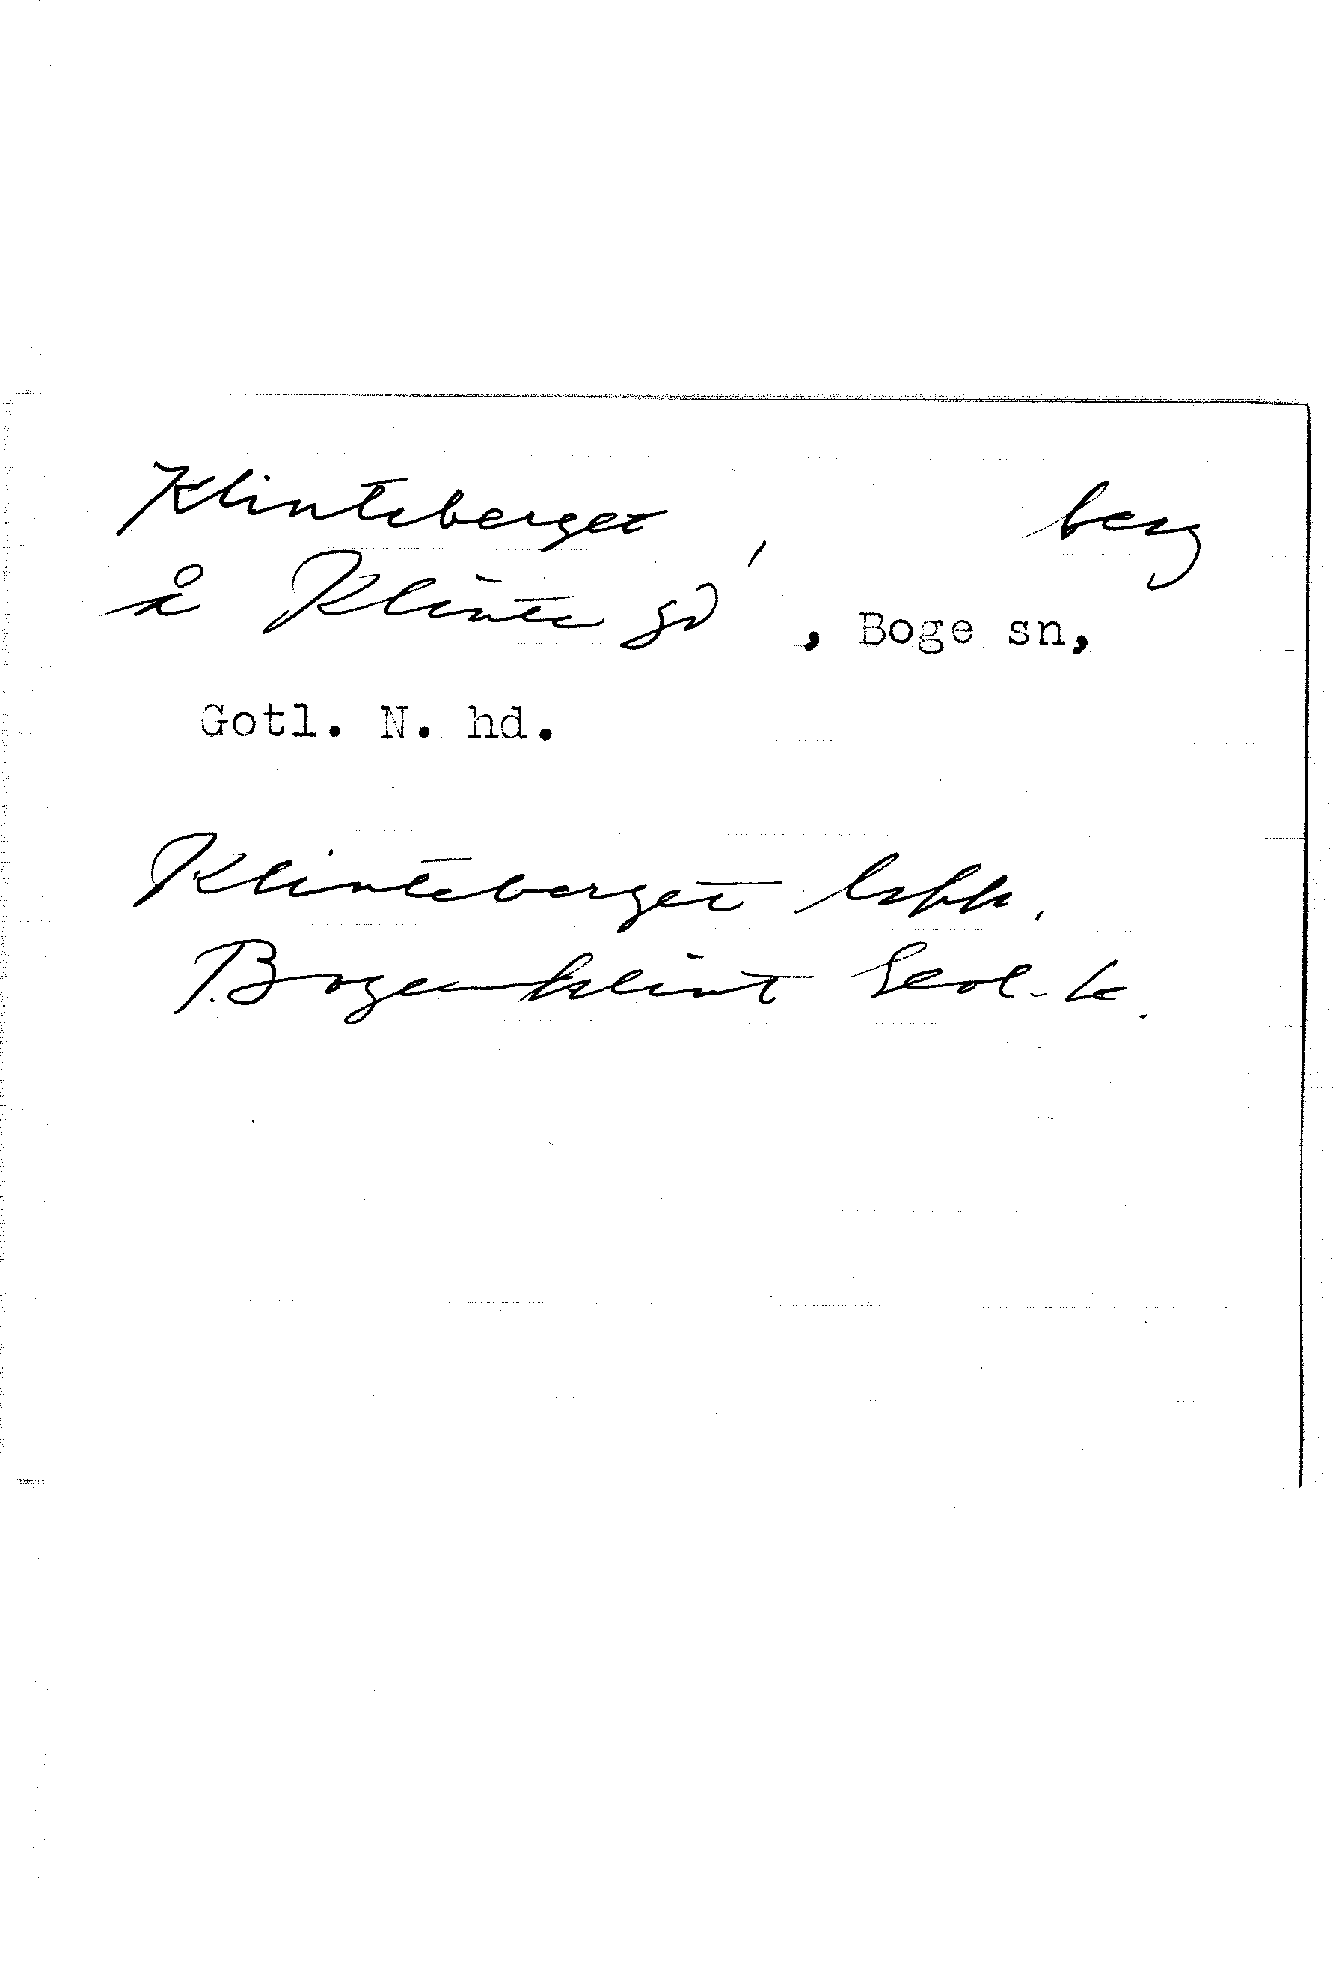 Klinteberget, berg
å Klinte gd, Boge sn,
Gotl. N. hd.
Klinteberget
Bogeklint Geol. k.